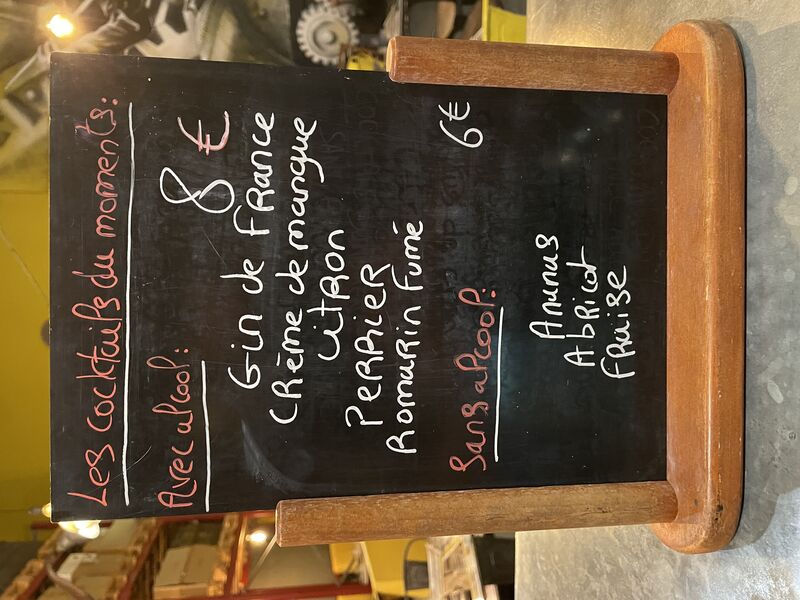 Les cocktails du moments:
Avec alcool:
8 €
Gin de FRANCE
Crème de mangue
CitRON
PERRIER
Romarin Fumé
Sans alcool:
6€
Ananas
Abricot
Fraise